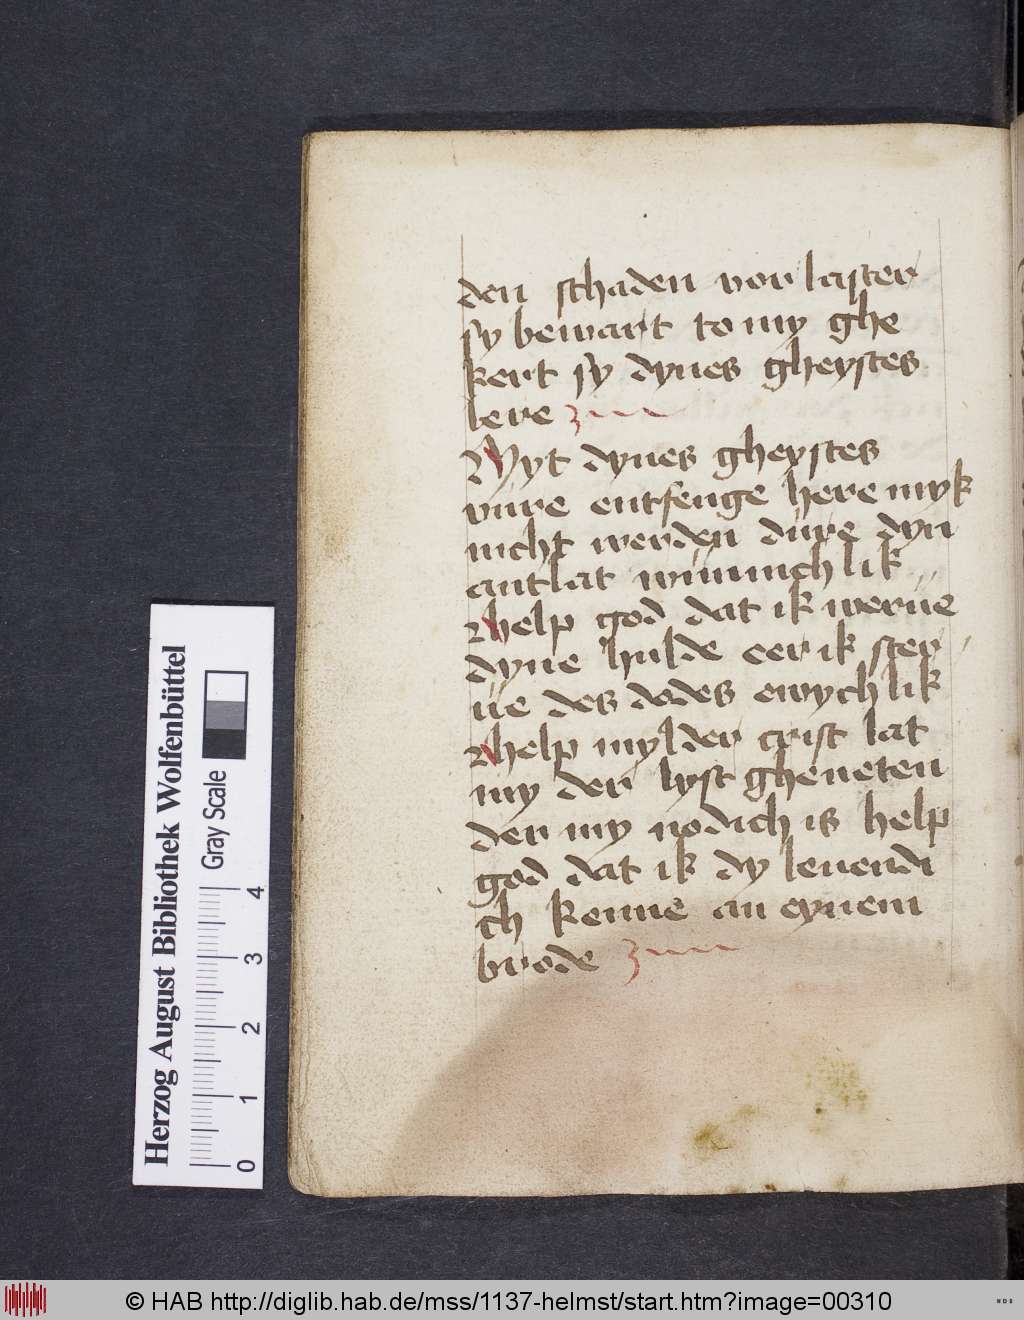 den schaden vor laster
sy bewart to my ghe
kert sy dynes gheystes
lere
Myt dynes gheystes
vure entfenge here myk
nicht werden dure dyn
antlat wunnichlik
help god dat ik werue
dyne hulde eer ik ster
ue des dodes ewychlik
help mylder crist lat
my der lyst gheneten
der my nodich is help
god dat ik dy leuendi
ch kenne an eynem
brode
Herzog August Bibliothek Wolfenbüttel
Gray Scale
0 1 2 3 4
© HAB http://diglib.hab.de/mss/1137-helmst/start.htm?image=00310